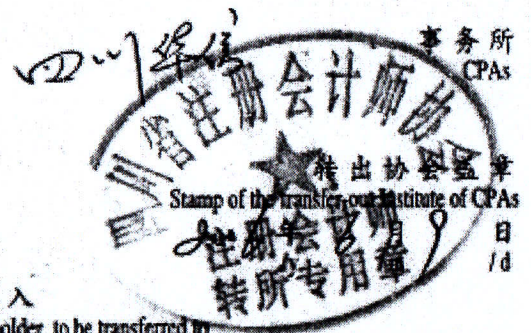 四川华信
事务所
CPAs
四川省注册会计师协会
转出协会盖章
Stamp of the transfer-out Institute of CPAs
年 月 9 日
/d
注册会计师
转所专用章
入
holder to be transferred to